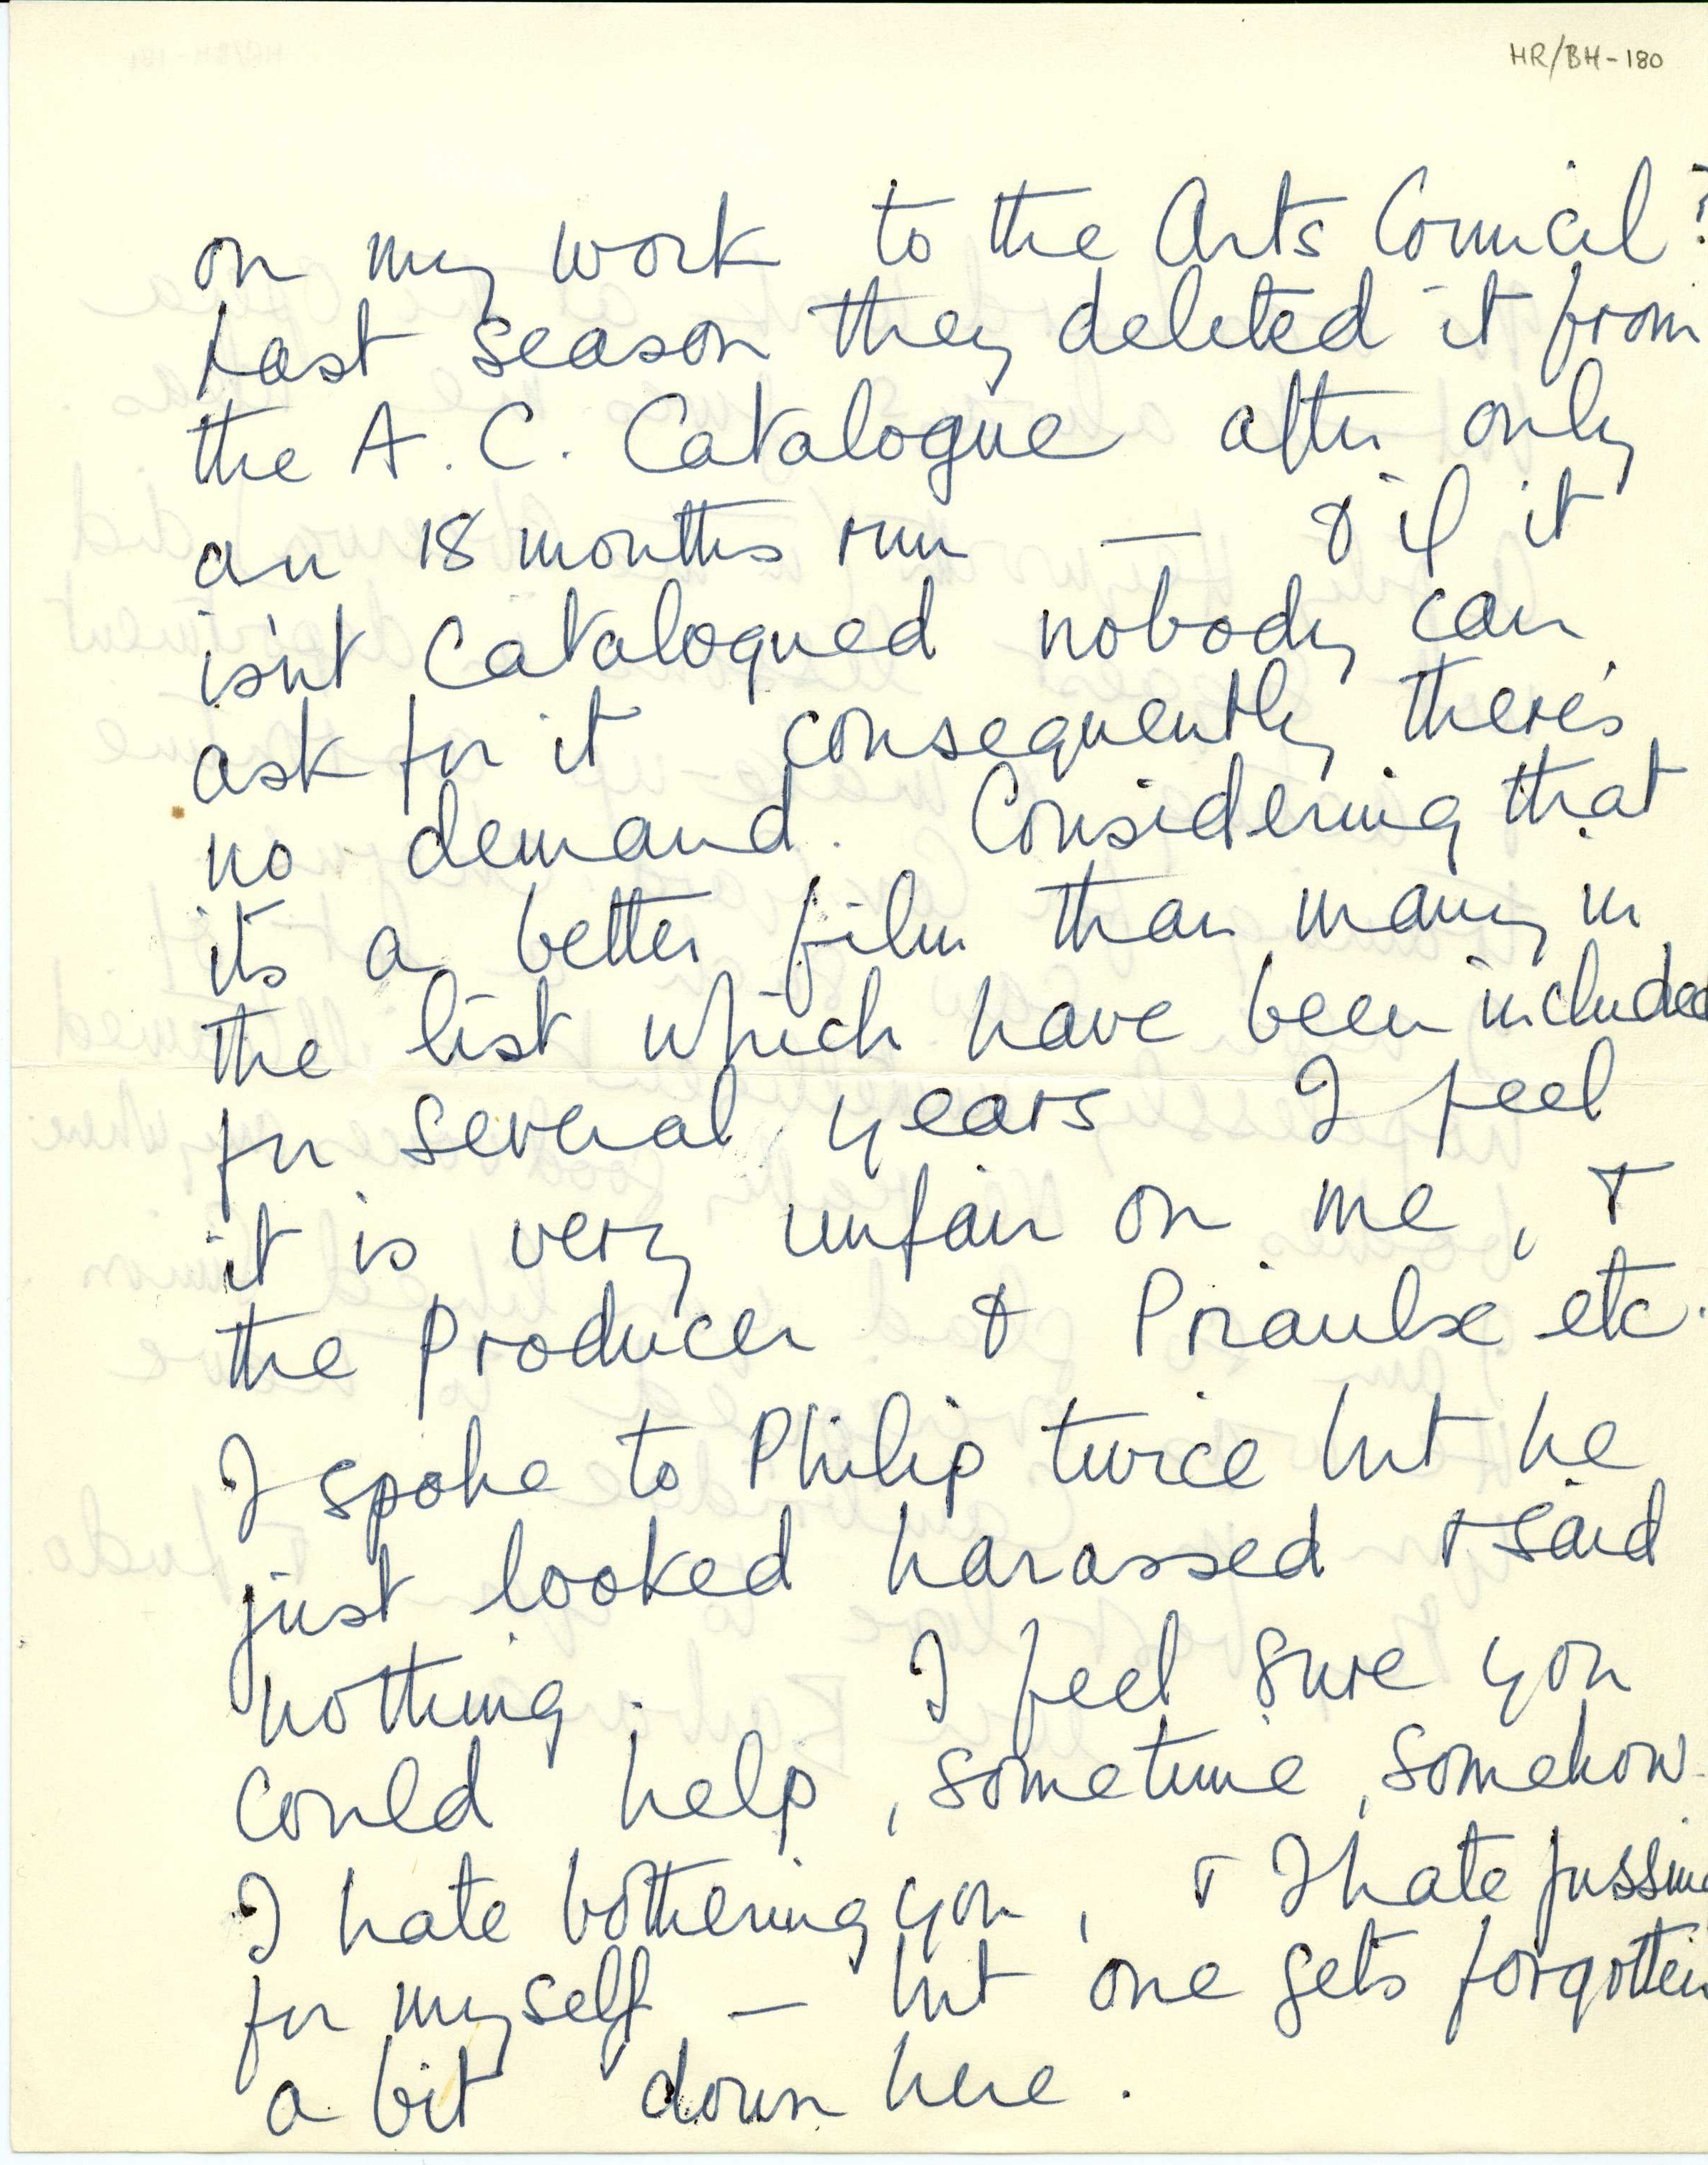 HR/BH-180
on my work to the Arts Council?
Last season they deleted it from
the A.C. Catalogue after only
an 18 months run — & if it
isn't catalogued nobody can
ask for it consequently there's
no demand. Considering that
its a better film than many in
the list which have been included
for several years I feel
it is very unfair on me, &
the Producer & Priaulx etc.
I spoke to Philip twice but he
just looked harassed & said
nothing. I feel sure you
could help, sometime, somehow.
I hate bothering you, & I hate fussing
for myself — but one gets forgotten
a bit down here.